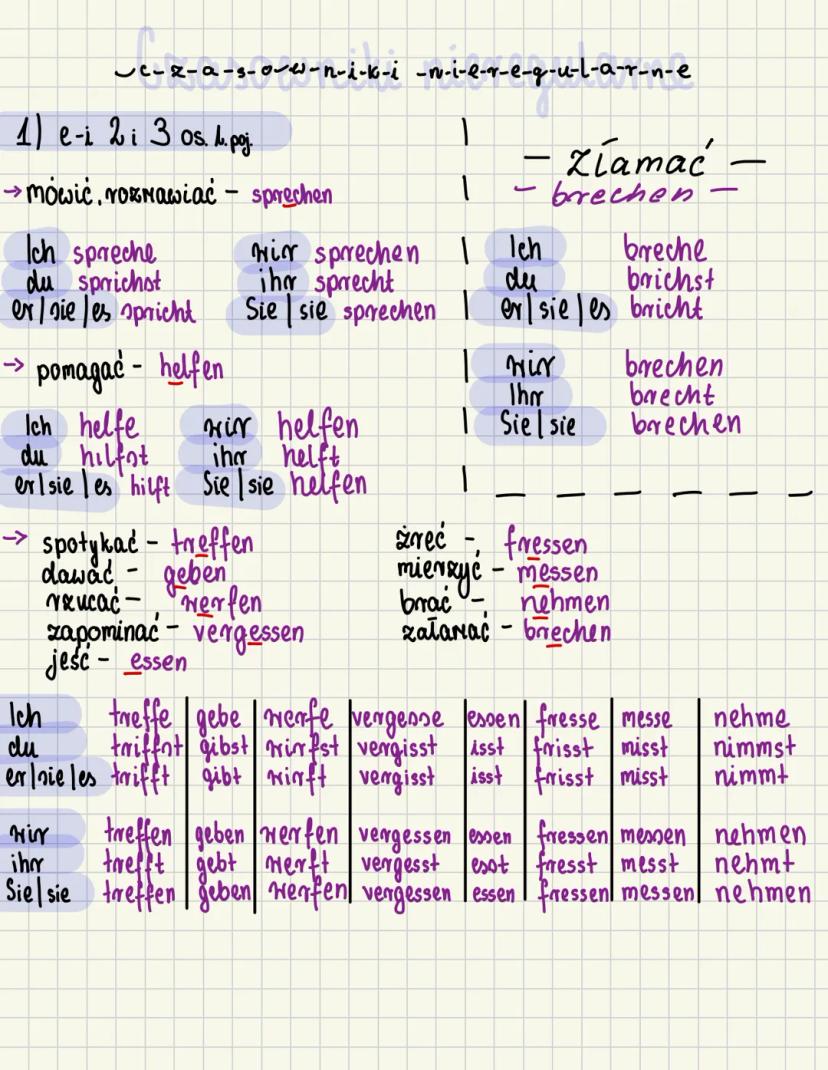 Czasowniki nieregularne
c-z-a-s-o-w-n-i-k-i -n-i-e-r-e-g-u-l-a-r-n-e
1) e-i 2 i 3 os. l. poj.
→ mówić, rozmawiać - sprechen
Ich spreche wir sprechen
du sprichst ihr sprecht
er|sie|es spricht Sie|sie sprechen
→ pomagać - helfen
Ich helfe wir helfen
du hilfst ihr helft
er|sie|es hilft Sie|sie helfen
— złamać —
— brechen —
Ich breche
du brichst
er|sie|es bricht
wir brechen
Ihr brecht
Sie|sie brechen
→ spotykać - treffen
dawać - geben
rzucać - werfen
zapominać - vergessen
jeść - essen
żreć - fressen
mierzyć - messen
brać - nehmen
załamać - brechen
Ich treffe gebe werfe vergesse essen fresse messe nehme
du triffst gibst wirfst vergisst isst frisst misst nimmst
er|sie|es trifft gibt wirft vergisst isst frisst misst nimmt
wir treffen geben werfen vergessen essen fressen messen nehmen
ihr trefft gebt werft vergesst esst fresst messt nehmt
Sie|sie treffen geben werfen vergessen essen fressen messen nehmen